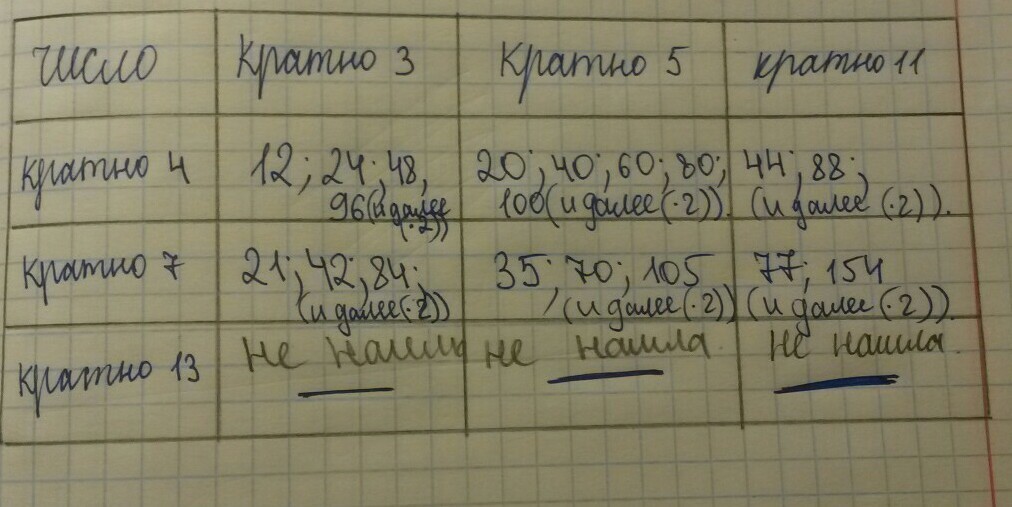 число Кратно 3 Кратно 5 кратно 11
кратно 4 12; 24; 48, 20; 40; 60; 80; 44; 88;
96(и далее 100(и далее(·2)). (и далее (·2)).
(·2))
кратно 7 21; 42; 84; 35; 70; 105 77; 154
(и далее(·2)) (и далее(·2)) (и далее(·2)).
кратно 13 не нашла не нашла. не нашла.